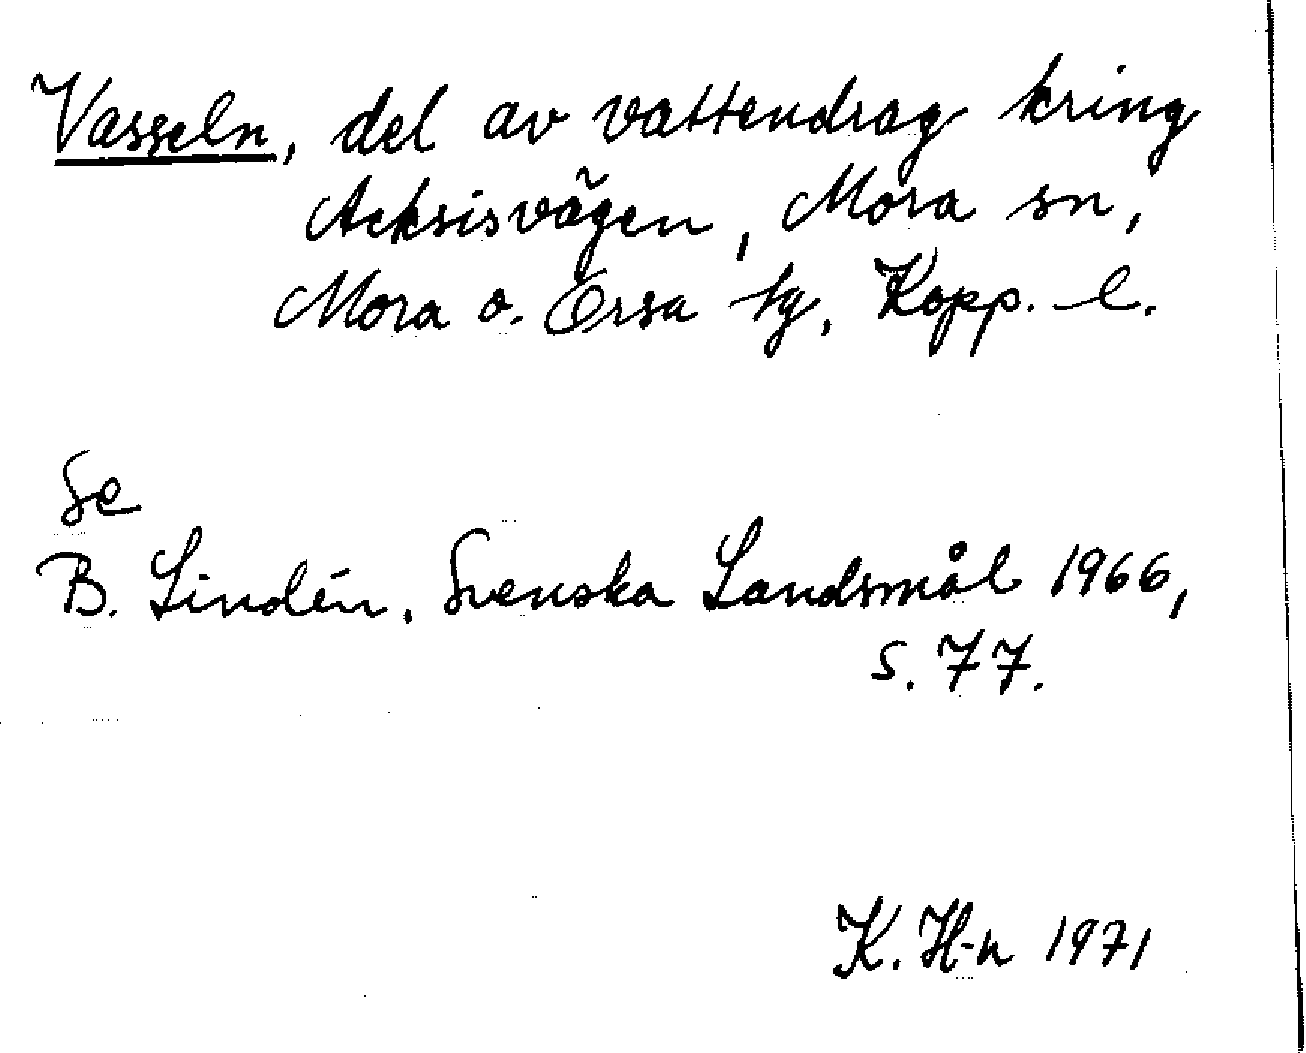 Vasseln, del av vattendrag kring
Acksisvägen, Mora sn,
Mora o. Orsa tg, Kopp. l.
Se
B. Lindén, Svenska Landsmål 1966,
s. 77.
K. H-n 1971